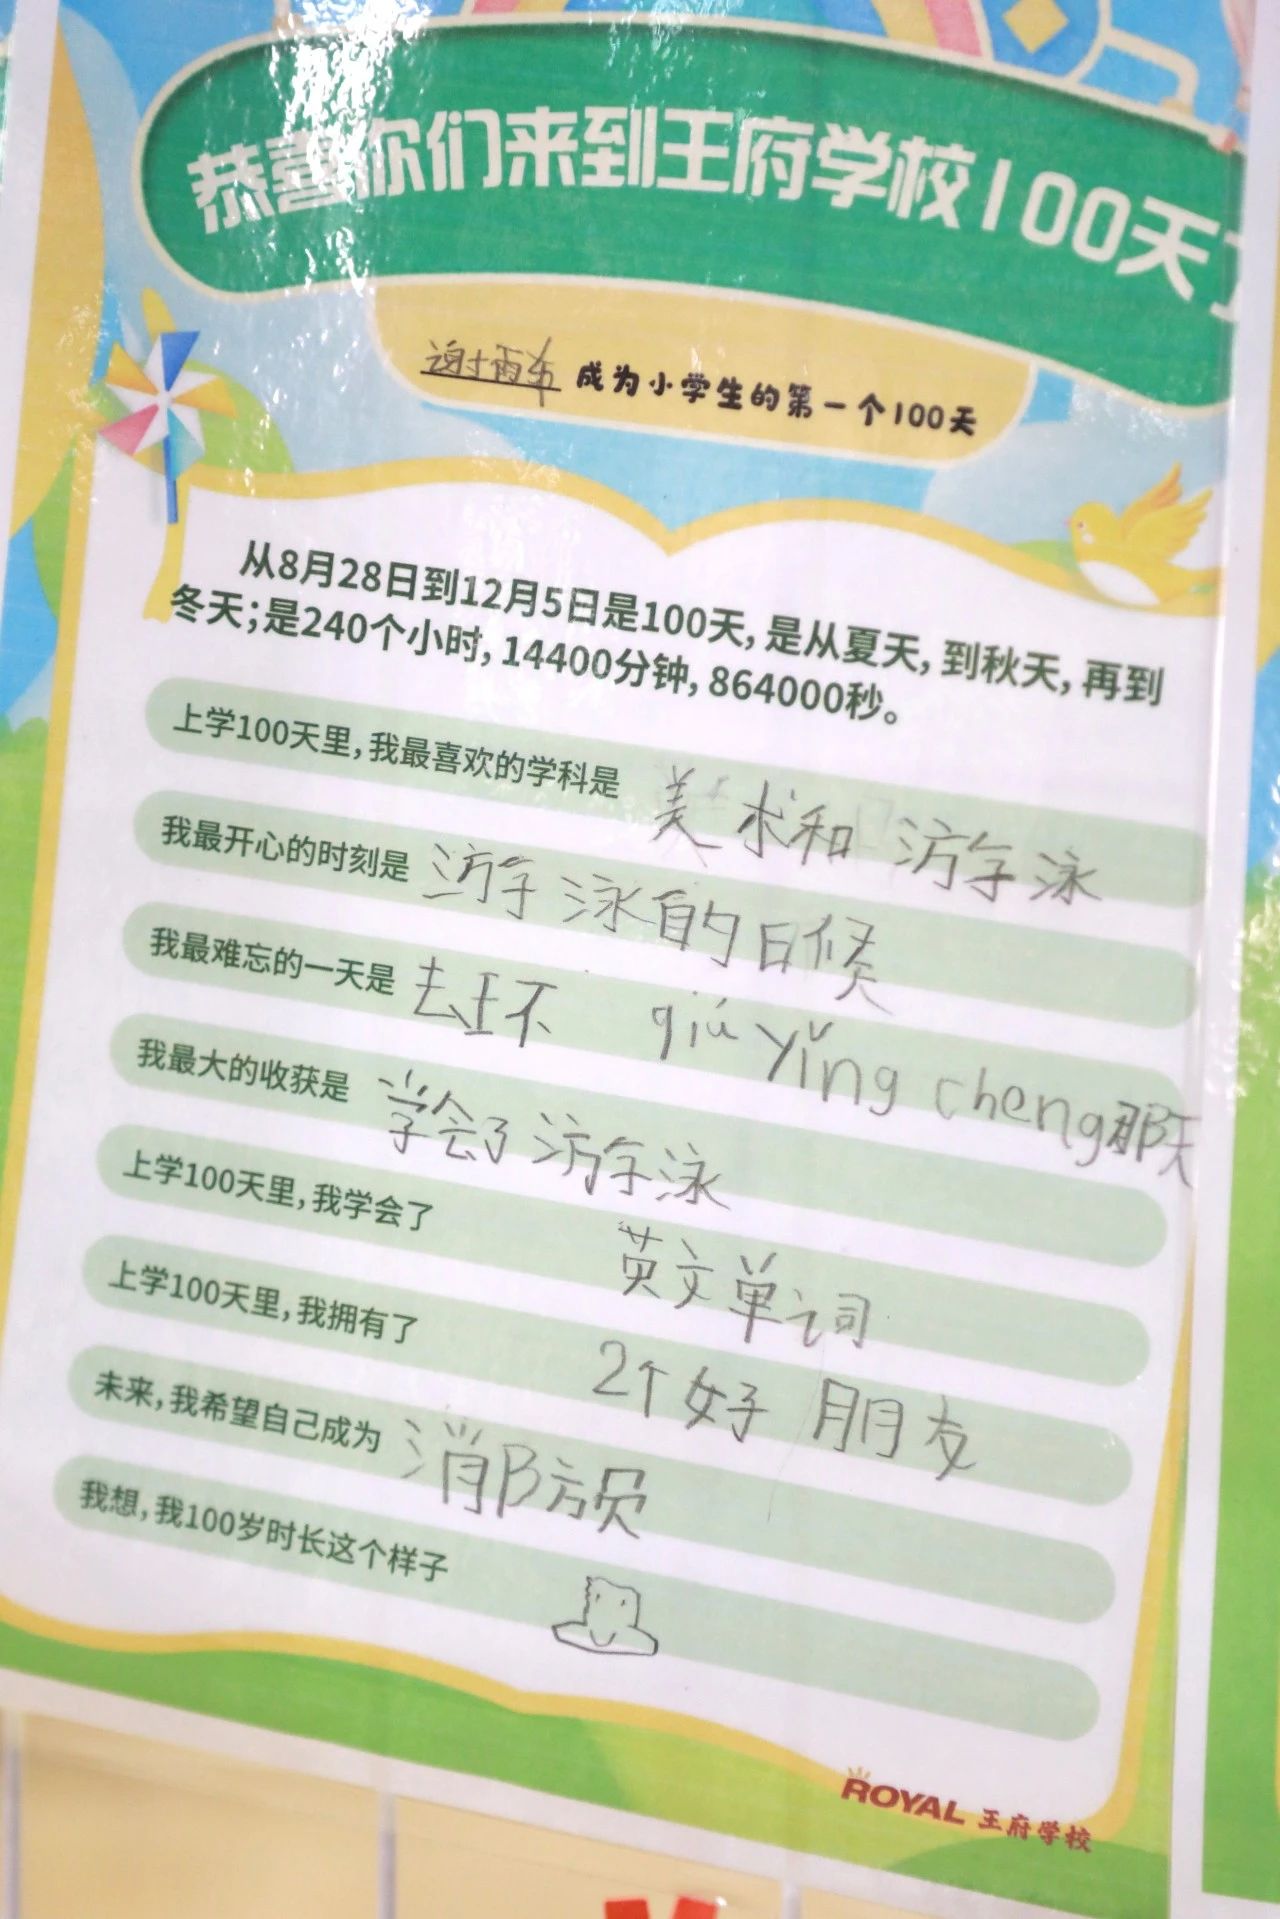 恭喜你们来到王府学校100天
谢雨希 成为小学生的第一个100天
从8月28日到12月5日是100天，是从夏天，到秋天，再到
冬天；是240个小时，14400分钟，864000秒。
上学100天里，我最喜欢的学科是 美术和游泳
我最开心的时刻是 游泳的时候
我最难忘的一天是 去环 qiú yǐng cheng那天
我最大的收获是 学会了游泳
上学100天里，我学会了 英文单词
上学100天里，我拥有了 2个好朋友
未来，我希望自己成为 消防员
我想，我100岁时长这个样子
ROYAL 王府学校